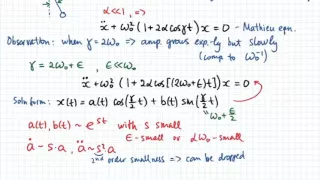 α<<1, =>
ẍ + ω₀² (1 + 2α cos γt) x = 0 - Mathieu eqn.
Observation: when γ = 2ω₀ => amp. grows exp-ly but slowly
(comp to ω₀⁻¹)
γ = 2ω₀ + ε, ε<<ω₀
ẍ + ω₀² (1 + 2α cos[(2ω₀+ε)t]) x = 0
Soln form: x(t) = a(t) cos(γ/2 t) + b(t) sin(γ/2 t)
"ω₀ + ε/2
a(t), b(t) ~ e^st with s small
ε-small or αω₀-small
ȧ ~ s·a, ä ~ s²·a
2nd order smallness => can be dropped